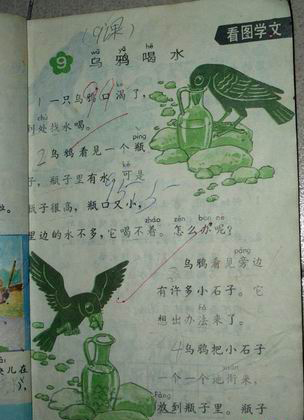 (9课)
看图学文
9 乌鸦喝水
wū yā hē
1 一只乌鸦口渴了,
到处找水喝。
píng
2 乌鸦看见一个瓶
kě
子,瓶子里有水,可是
瓶子很高,瓶口又小,
zhāo zěn bàn ne
里边的水不多,它喝不着。怎么办呢?
páng
3 乌鸦看见旁边
有许多小石子。它
fǎ
想出办法来了。
4 乌鸦把小石子
一个一个地衔来,
fàng
放到瓶子里。瓶子
儿在